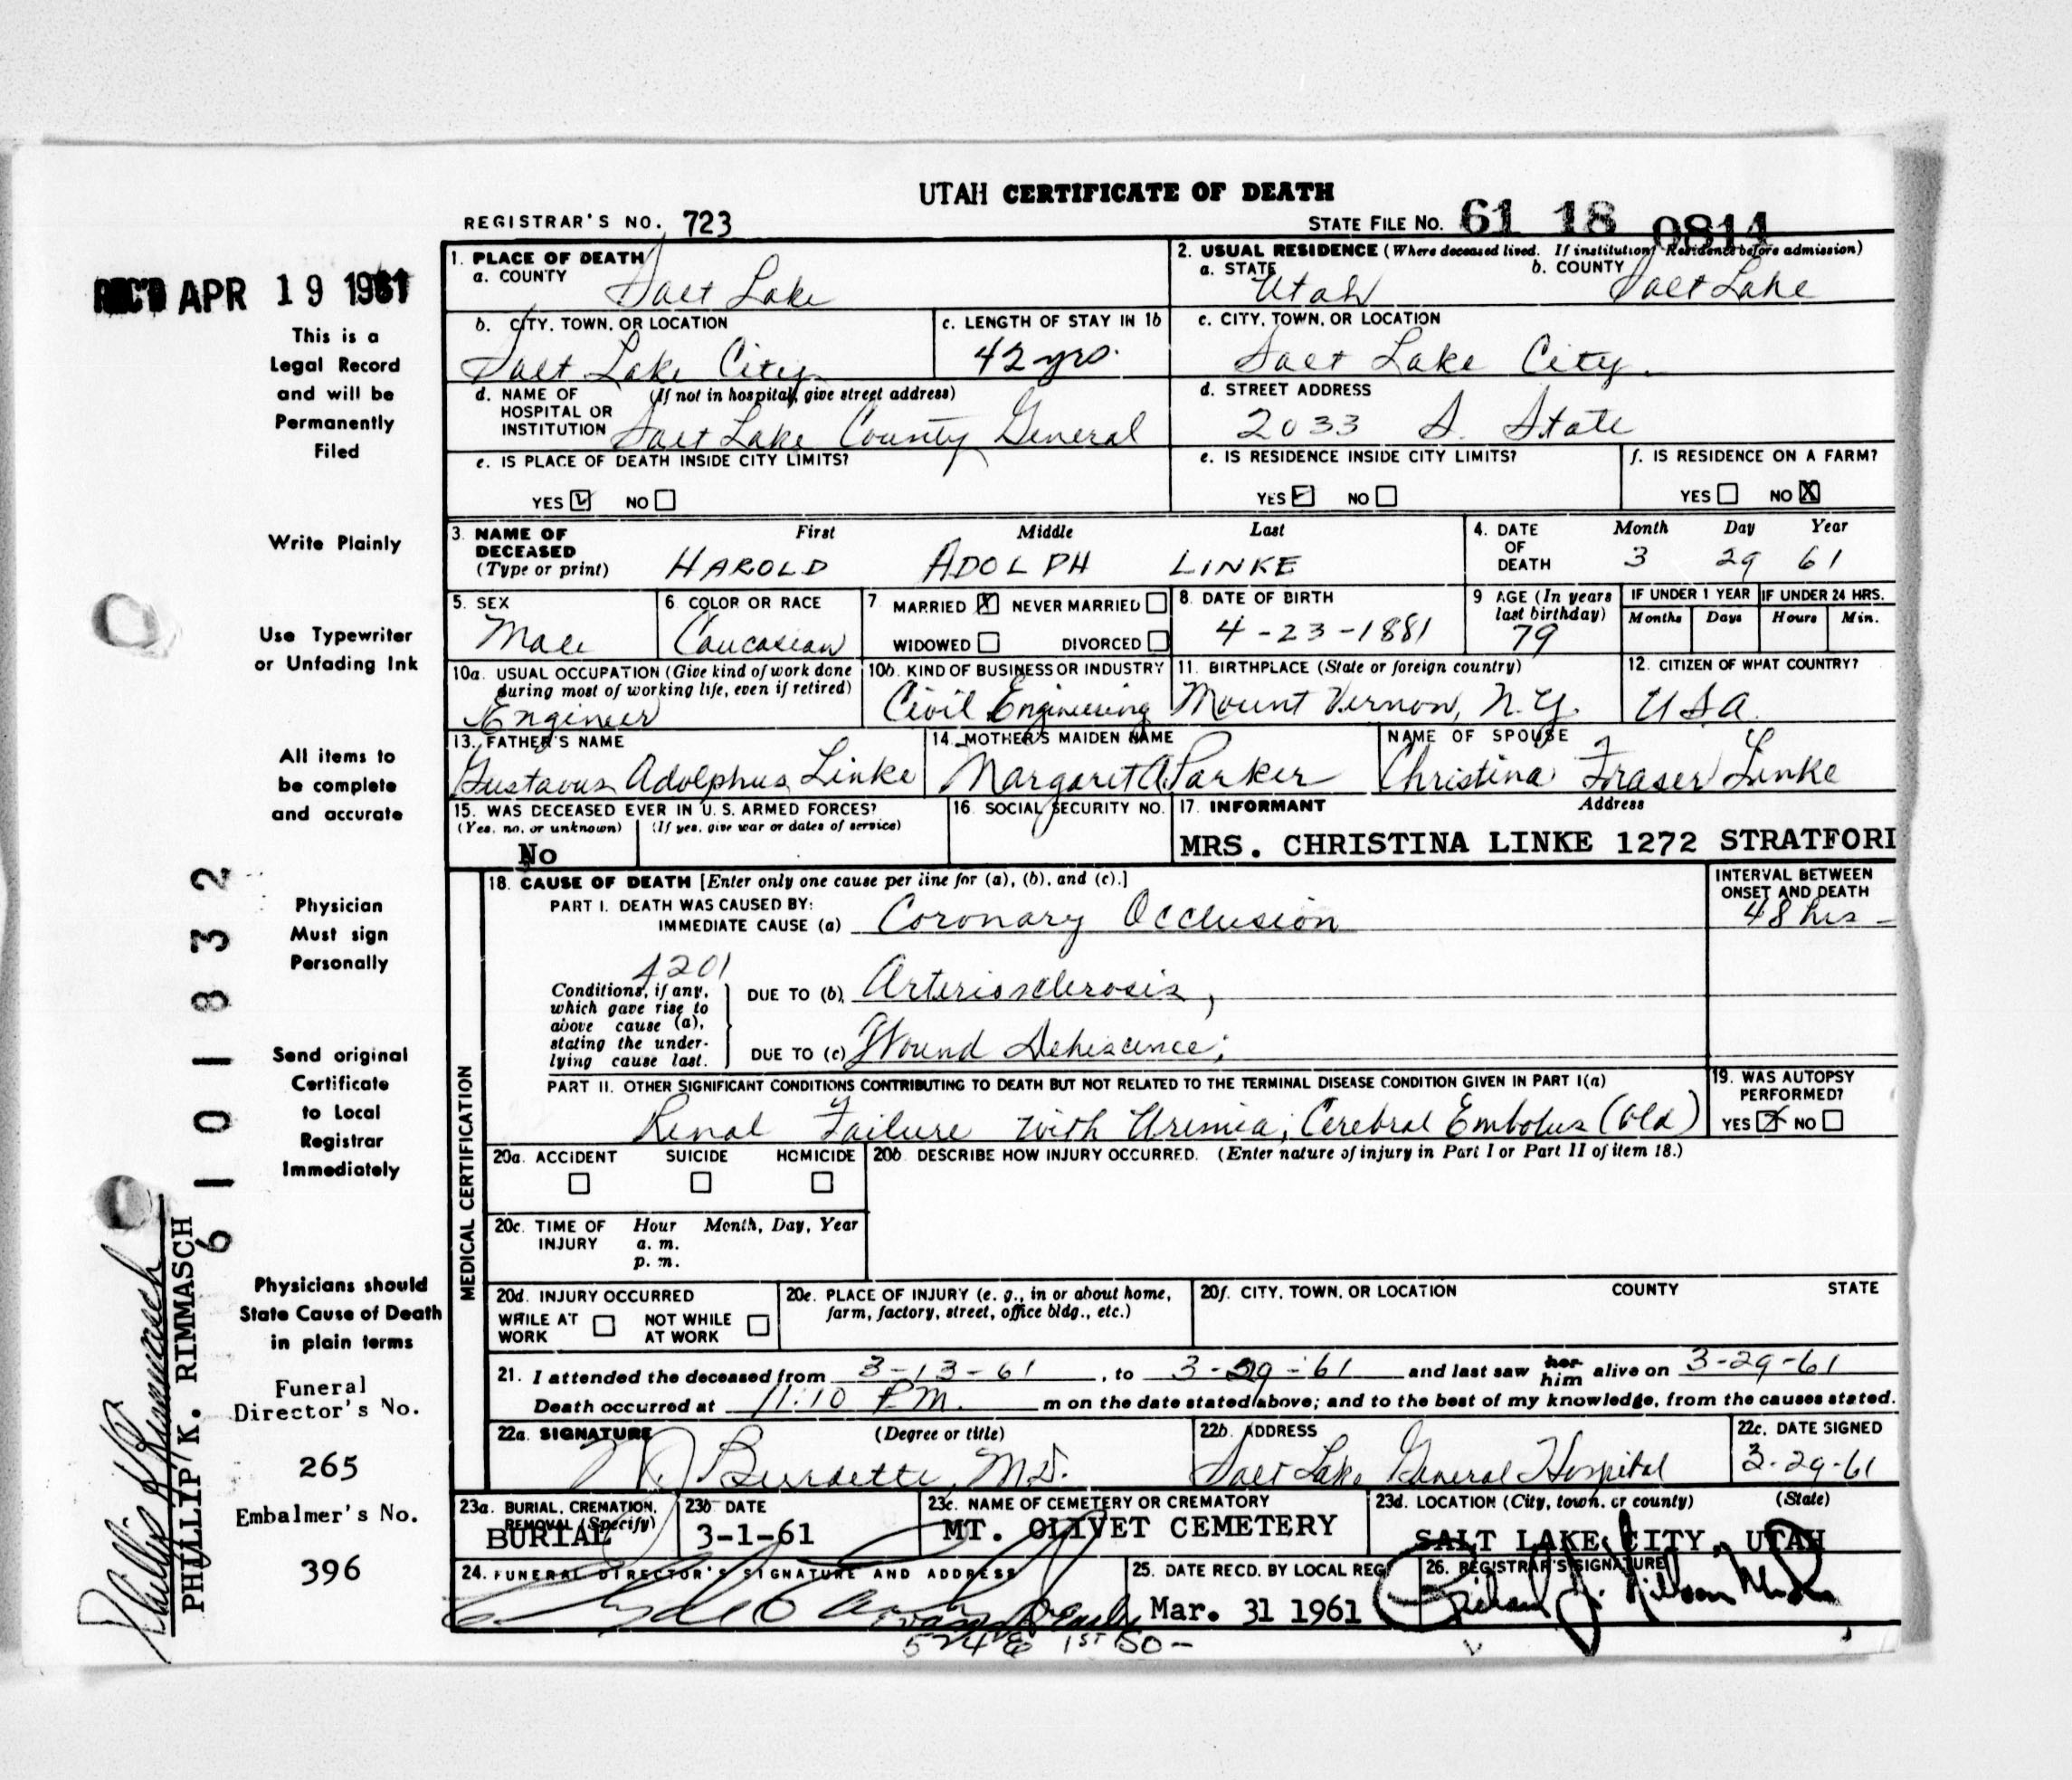 UTAH CERTIFICATE OF DEATH
REGISTRAR'S NO. 723
STATE FILE NO. 61 18 0814
REC'D APR 19 1961
This is a
Legal Record
and will be
Permanently
Filed
Write Plainly
Use Typewriter
or Unfading Ink
All items to
be complete
and accurate
Physician
Must sign
Personally
Send original
Certificate
to Local
Registrar
Immediately
Physicians should
State Cause of Death
in plain terms
Funeral
Director's No.
265
Embalmer's No.
396
6101832
Phillip K Rimmasch
PHILLIP K. RIMMASCH
1. PLACE OF DEATH
a. COUNTY Salt Lake
2. USUAL RESIDENCE (Where deceased lived. If institution: Residence before admission)
a. STATE Utah b. COUNTY Salt Lake
b. CITY, TOWN, OR LOCATION Salt Lake City
c. LENGTH OF STAY IN 1b 42 yrs.
c. CITY, TOWN, OR LOCATION Salt Lake City.
d. NAME OF HOSPITAL OR INSTITUTION (If not in hospital, give street address) Salt Lake County General
d. STREET ADDRESS 2033 S. State
e. IS PLACE OF DEATH INSIDE CITY LIMITS?
YES NO
e. IS RESIDENCE INSIDE CITY LIMITS?
YES NO
f. IS RESIDENCE ON A FARM?
YES NO X
3. NAME OF DECEASED (Type or print) First Middle Last
HAROLD ADOLPH LINKE
4. DATE OF DEATH Month Day Year
3 29 61
5. SEX Male
6. COLOR OR RACE Caucasian
7. MARRIED X NEVER MARRIED
WIDOWED DIVORCED
8. DATE OF BIRTH 4-23-1881
9 AGE (In years last birthday) 79
IF UNDER 1 YEAR Months Days
IF UNDER 24 HRS. Hours Min.
10a. USUAL OCCUPATION (Give kind of work done during most of working life, even if retired) Engineer
10b. KIND OF BUSINESS OR INDUSTRY Civil Engineering
11. BIRTHPLACE (State or foreign country) Mount Vernon, N.Y.
12. CITIZEN OF WHAT COUNTRY? USA
13. FATHER'S NAME Gustavus Adolphus Linke
14. MOTHER'S MAIDEN NAME Margaret A. Parker
NAME OF SPOUSE Christina Fraser Linke
15. WAS DECEASED EVER IN U. S. ARMED FORCES?
(Yes, no, or unknown) (If yes, give war or dates of service)
No
16. SOCIAL SECURITY NO.
17. INFORMANT Address
MRS. CHRISTINA LINKE 1272 STRATFORD
MEDICAL CERTIFICATION
18. CAUSE OF DEATH [Enter only one cause per line for (a), (b), and (c).]
INTERVAL BETWEEN ONSET AND DEATH
PART I. DEATH WAS CAUSED BY:
IMMEDIATE CAUSE (a) Coronary Occlusion 48 hrs -
4201
Conditions, if any, which gave rise to above cause (a), stating the underlying cause last.
DUE TO (b) Arteriosclerosis,
DUE TO (c) Wound Dehiscence;
PART II. OTHER SIGNIFICANT CONDITIONS CONTRIBUTING TO DEATH BUT NOT RELATED TO THE TERMINAL DISEASE CONDITION GIVEN IN PART I(a)
Renal Failure with Uremia; Cerebral Embolus (Old)
19. WAS AUTOPSY PERFORMED?
YES X NO
20a. ACCIDENT SUICIDE HOMICIDE
20b. DESCRIBE HOW INJURY OCCURRED. (Enter nature of injury in Part I or Part II of item 18.)
20c. TIME OF INJURY Hour Month, Day, Year
a. m.
p. m.
20d. INJURY OCCURRED
WHILE AT WORK NOT WHILE AT WORK
20e. PLACE OF INJURY (e. g., in or about home, farm, factory, street, office bldg., etc.)
20f. CITY, TOWN, OR LOCATION COUNTY STATE
21. I attended the deceased from 3-13-61, to 3-29-61 and last saw her him alive on 3-29-61
Death occurred at 11:10 P.M. m on the date stated above; and to the best of my knowledge, from the causes stated.
22a. SIGNATURE (Degree or title) Burdette, M.D.
22b. ADDRESS Salt Lake General Hospital
22c. DATE SIGNED 3-29-61
23a. BURIAL, CREMATION, REMOVAL (Specify) BURIAL
23b DATE 3-1-61
23c. NAME OF CEMETERY OR CREMATORY MT. OLIVET CEMETERY
23d. LOCATION (City, town, or county) (State) SALT LAKE CITY, UTAH
24. FUNERAL DIRECTOR'S SIGNATURE AND ADDRESS
524 E 1ST SO-
25. DATE RECD. BY LOCAL REG. Mar. 31 1961
26. REGISTRAR'S SIGNATURE